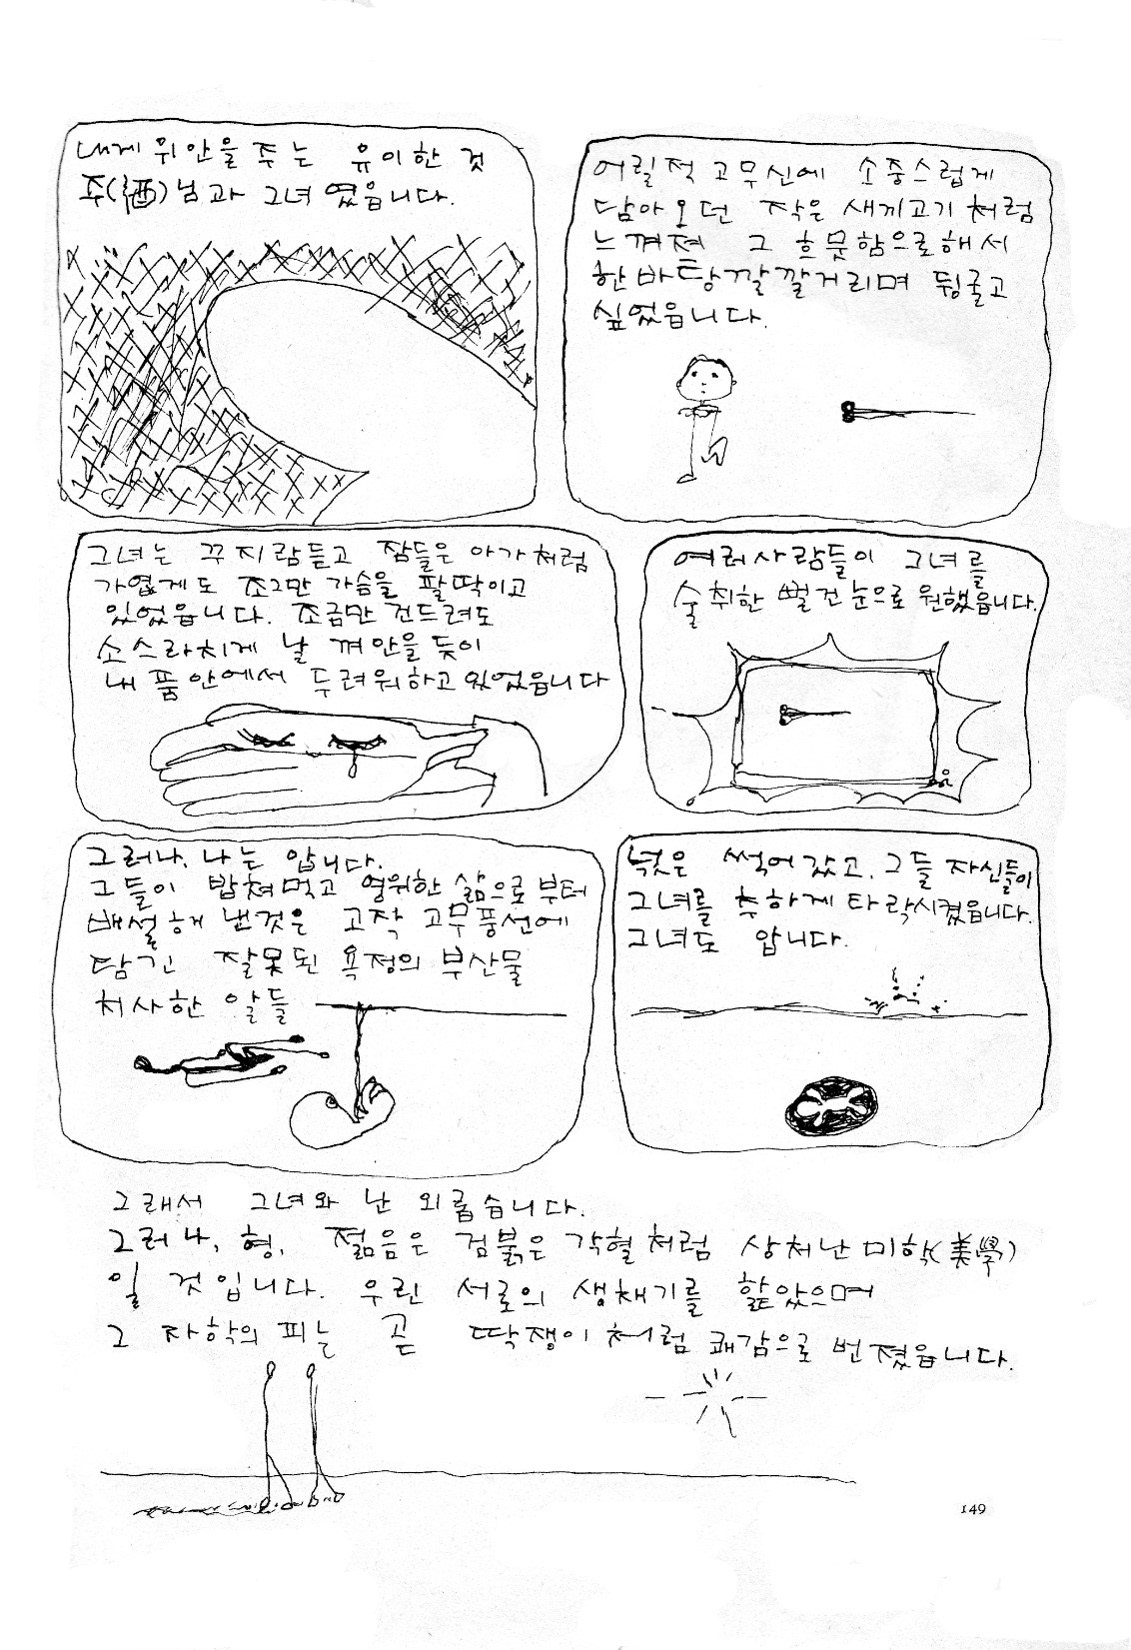 내게 위안을 주는 유이한 것
주(酒)님과 그녀 였읍니다.
어릴적 고무신에 소중스럽게
담아오던 작은 새끼고기처럼
느껴져 그 흐뭇함으로해서
한바탕깔깔거리며 뒹굴고
싶었읍니다.
그녀는 꾸지람듣고 잠들은 아가처럼
가엾게도 조그만 가슴을 팔딱이고
있었읍니다. 조금만 건드려도
소스라치게 날 껴안을 듯이
내 품안에서 두려워하고있었읍니다
여러사람들이 그녀를
술취한 뻘건눈으로 원했읍니다.
그러나, 나는 압니다.
그들이 밥쳐먹고 영위한 삶으로부터
배설해 낸것은 고작 고무풍선에
담긴 잘못된 욕정의 부산물
치사한 알들
넋은 썩어갔고, 그들 자신들이
그녀를 추하게 타락시켰읍니다.
그녀도 압니다.
그래서 그녀와 난 외롭습니다.
그러나, 형, 젊음은 검붉은 각혈처럼 상처난 미학(美學)
일 것입니다. 우린 서로의 생채기를 핥았으며
그 자학의 피는 곧 딱쟁이처럼 쾌감으로 번졌읍니다.
149